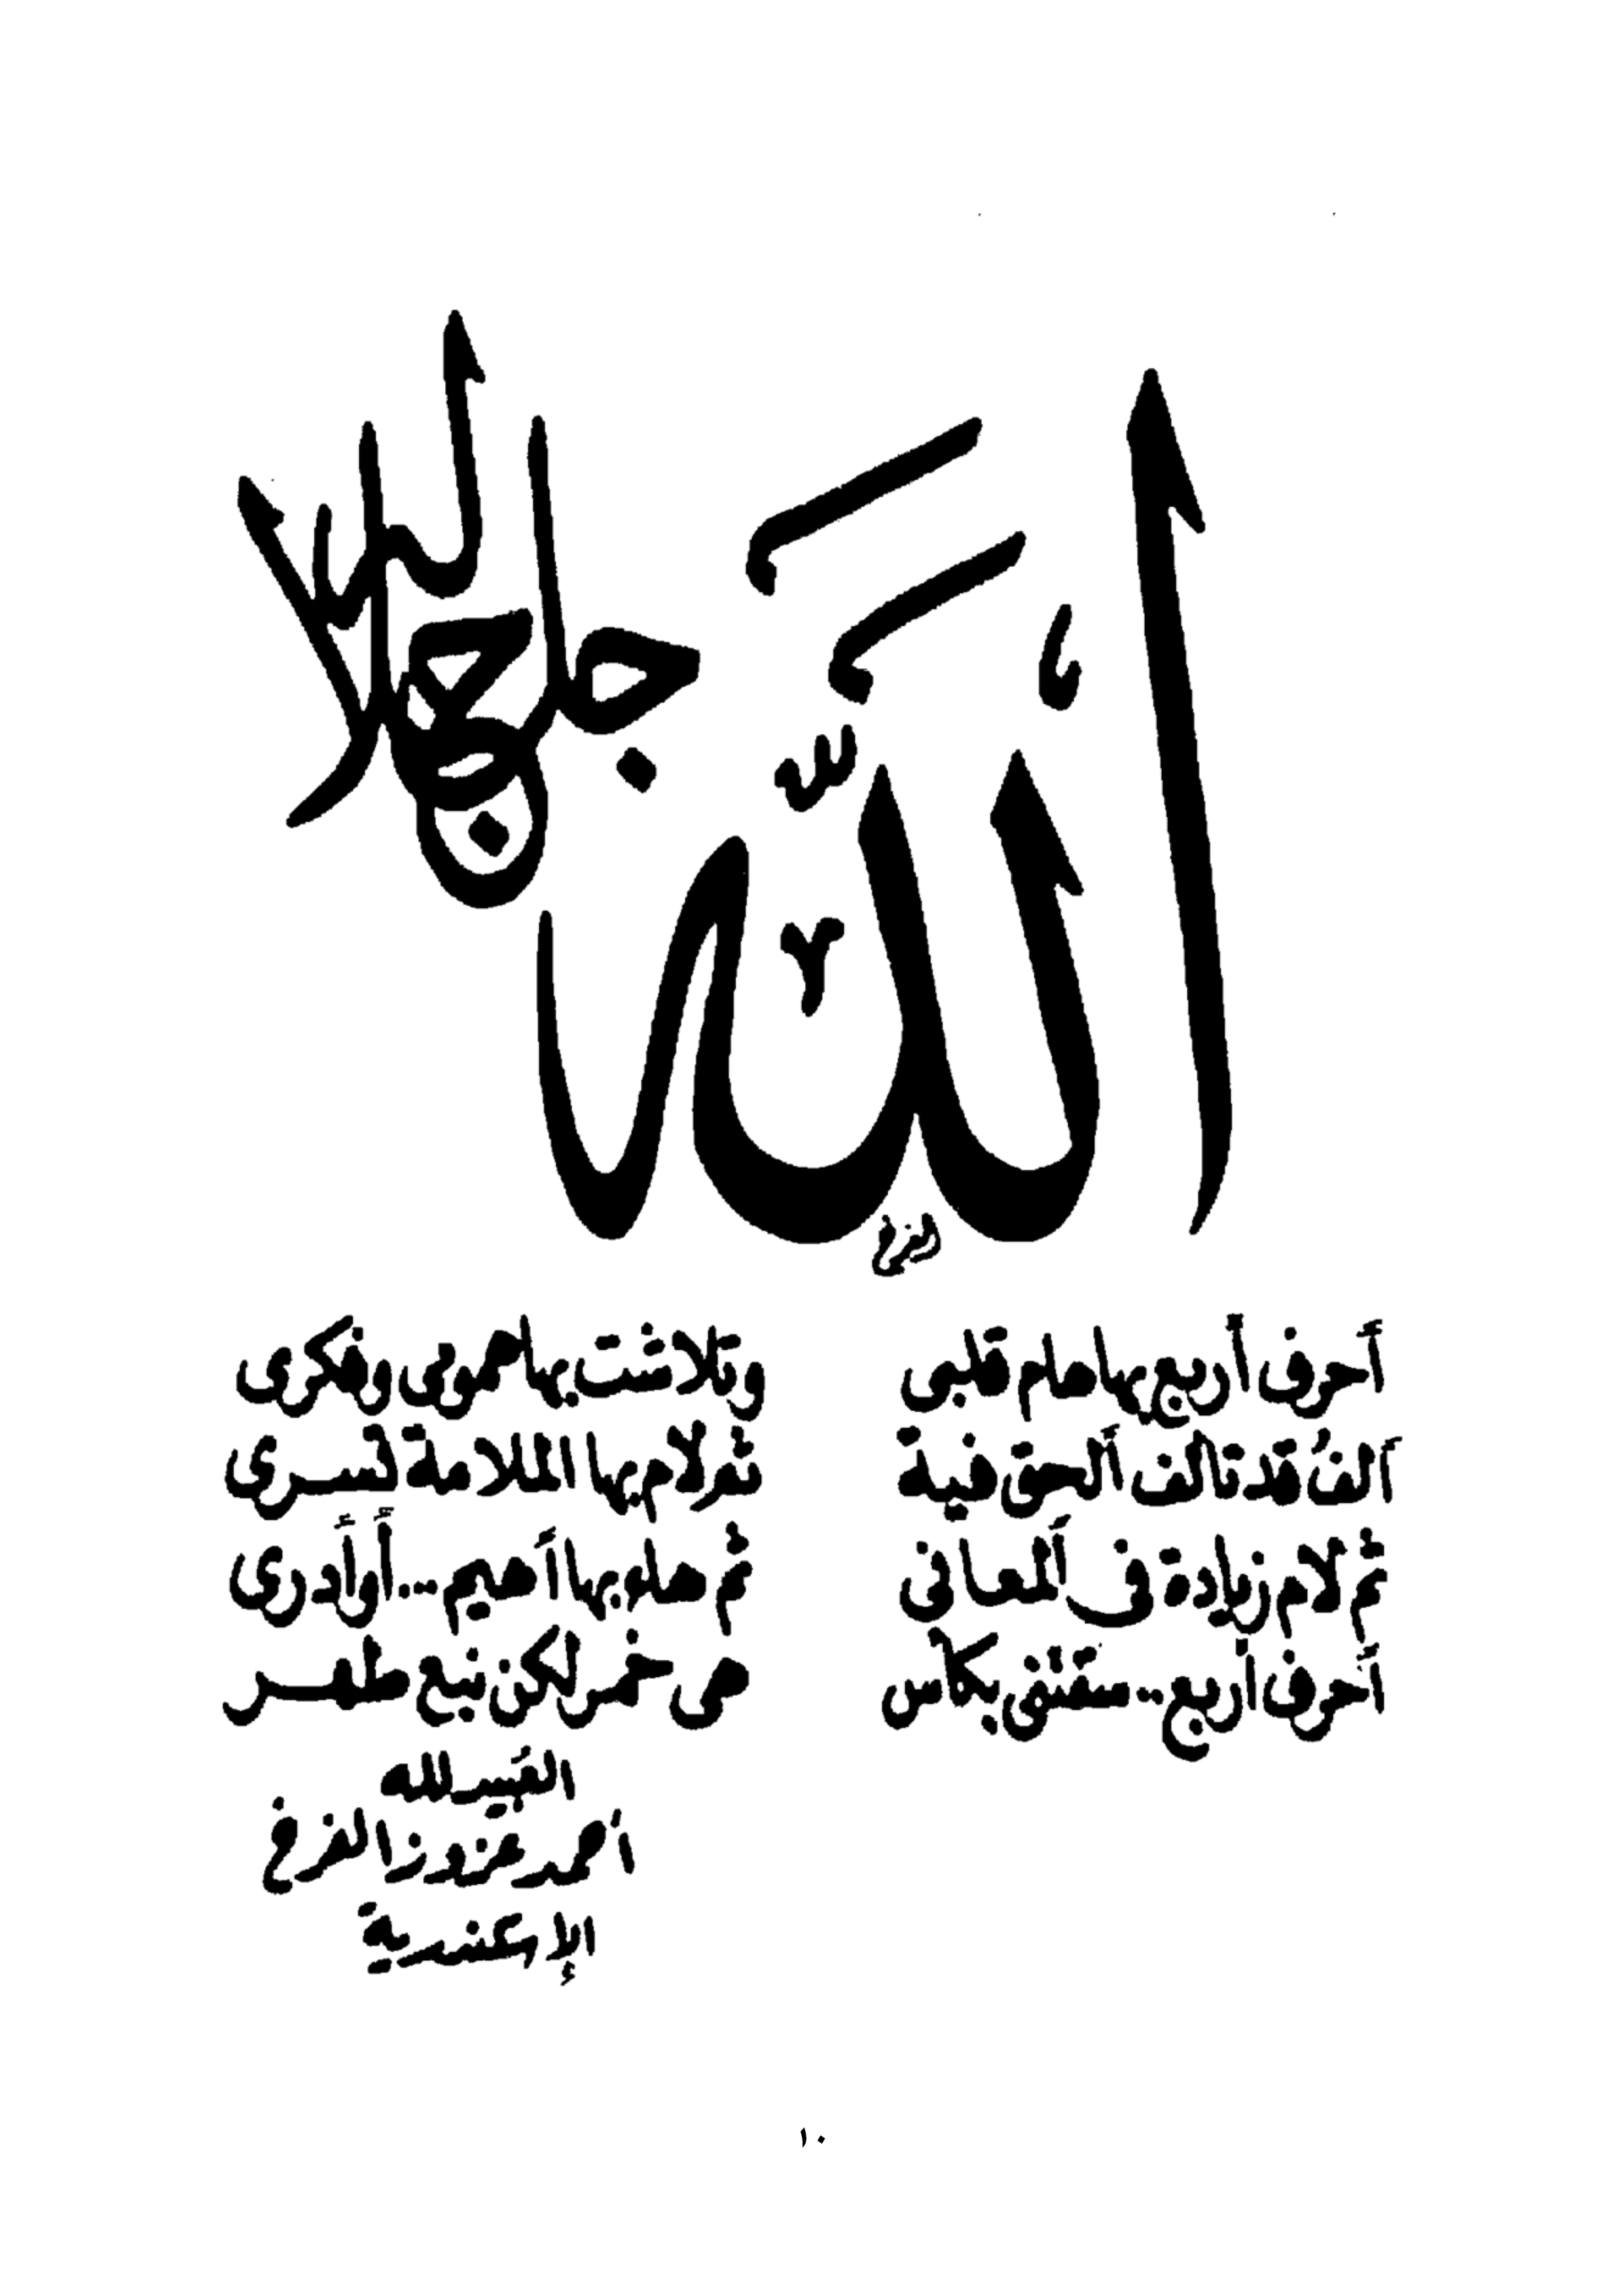 الله جل جلاله
أحرف أربع بها هام قلبى وتلاشت بها همومى وفكرى
ألف قد تآلف الحق فيه ثم لام بها الملامة تسرى
ثم لام زيادة فى المعانى ثم هاء بها أهيم... أو أدرى
أحرف أربع.. ستنثنى بكأس هى خمر لكن نبع طهر
لله
أحمد
الإسكندرية
١٠